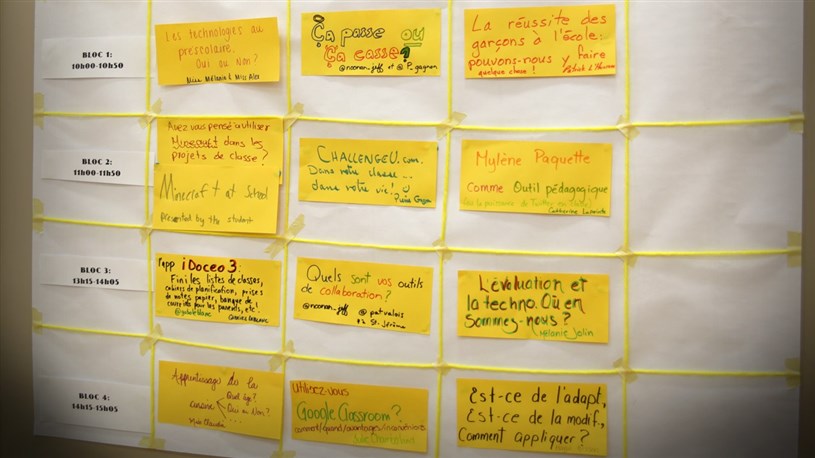 BLOC 1:
10h00-10h50
Les technologies au
préscolaire,
Oui ou Non?
Miss Mélanie & Miss Alex
Ça passe ou
Ça casse?
@noonan_jeff et @P_gagnon
La réussite des
garçons à l'école:
pouvons-nous y faire
quelque chose!
BLOC 2:
11h00-11h50
Avez vous pensé à utiliser
dans les
projets de classe?
Minecraft at School
presented by the students
CHALLENGEU.com.
Dans votre classe...
dans votre vie!
Mylène Paquette
comme Outil pédagogique
Catherine
BLOC 3:
13h15-14h05
l'app iDoceo 3:
Fini les listes de classes,
cahiers de planification, prises
de notes papier, banque de
pour les parents, etc!
Quels sont vos outils
de collaboration?
@noonan_jeff @patvalois
St-Jérôme
L'évaluation et
la techno. Où en
sommes-nous?
Mélanie Jolin
BLOC 4:
14h15-15h05
Apprentissage de la
cursive
Quel âge?
Oui ou Non?
...
Utilisez-vous
Google Classroom?
comment/quand/avantages/inconvénients
Est-ce de l'adapt,
Est-ce de la modif,
Comment appliquer?